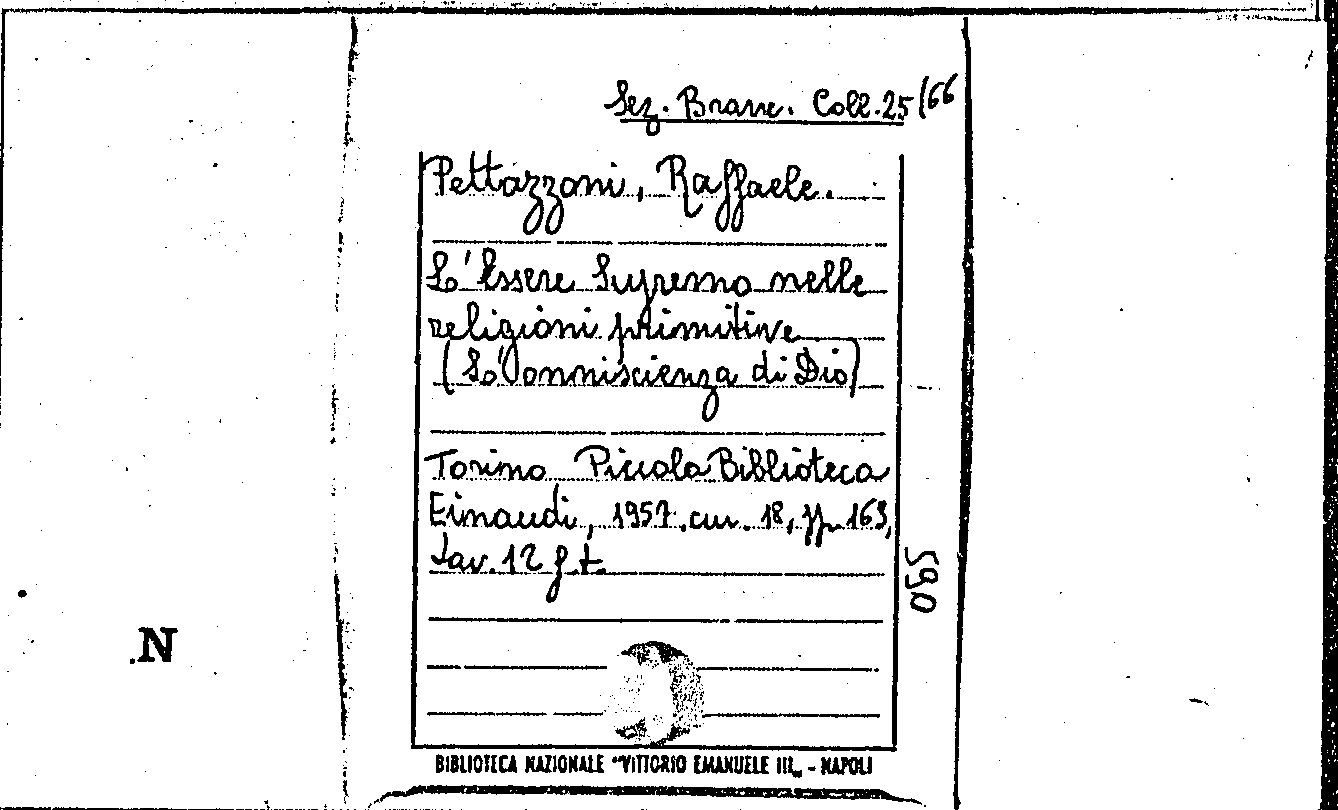 Sez. Branc. Coll. 25/66
Pettazzoni, Raffaele.
L'Essere Supremo nelle
religioni primitive
(L'onniscienza di Dio)
Torino Piccola Biblioteca
Einaudi, 1957. cm. 18, pp. 163,
tav. 12 f.t.
590
N
BIBLIOTECA NAZIONALE "VITTORIO EMANUELE III„ - NAPOLI